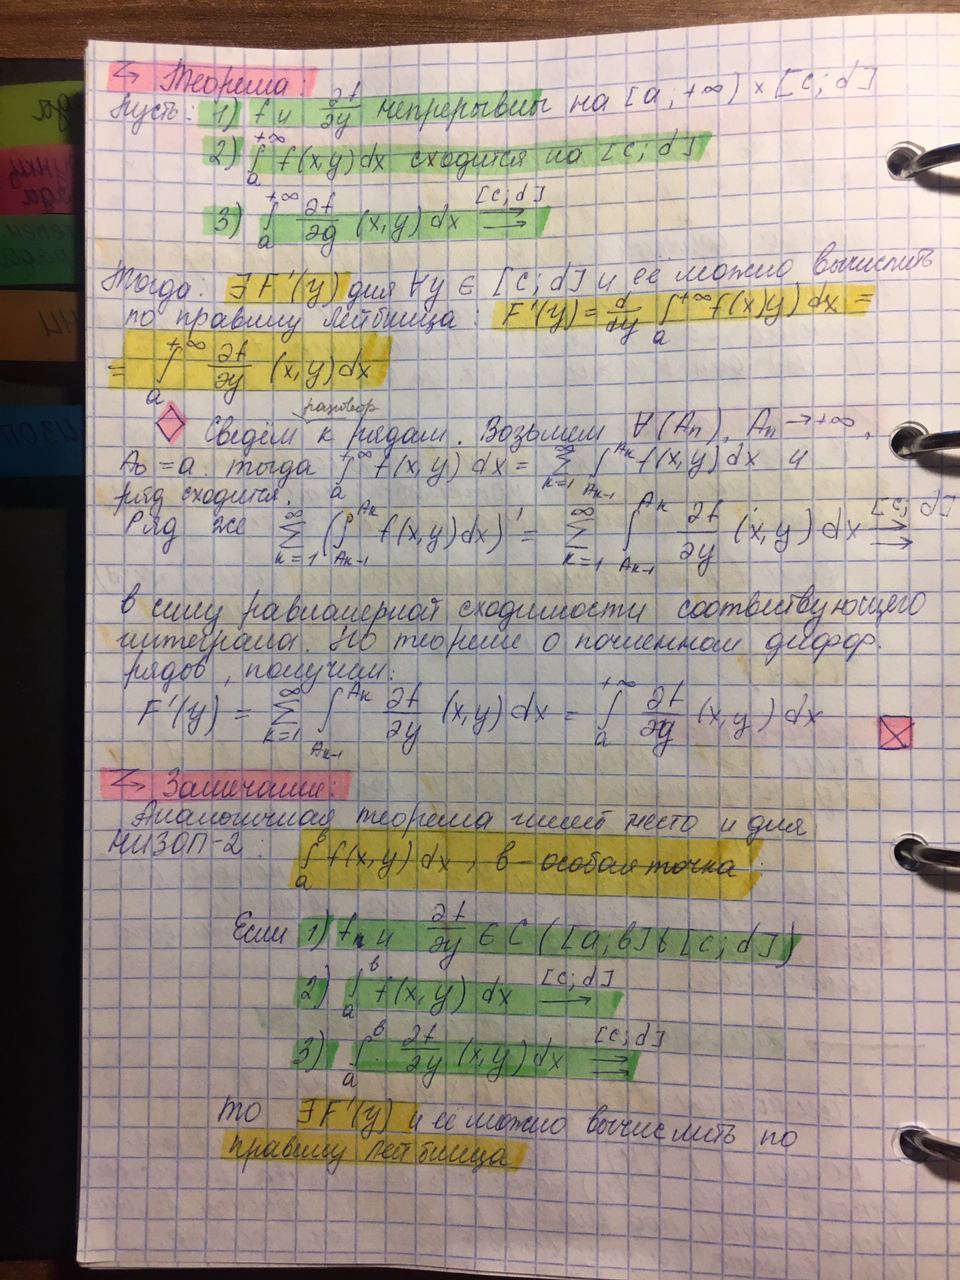 ↳ Теорема:
Пусть: 1) f и ∂f/∂y непрерывны на [a; +∞) × [c; d]
2) ∫_a^{+∞} f(x,y) dx сходится на [c; d]
3) ∫_a^{+∞} ∂f/∂y (x,y) dx ⇉^{[c;d]}
Тогда: ∃ F'(y) для ∀y ∈ [c; d] и её можно вычислить
по правилу Лейбница: F'(y) = d/dy ∫_a^{+∞} f(x,y) dx =
= ∫_a^{+∞} ∂f/∂y (x,y) dx
разговор
◇ Сведём к рядам. Возьмём ∀(Aₙ), Aₙ → +∞,
A₀ = a. тогда ∫_a^{+∞} f(x,y) dx = ∑_{k=1}^{∞} ∫_{A_{k-1}}^{A_k} f(x,y) dx и
ряд сходится.
Ряд же ∑_{k=1}^{∞} (∫_{A_{k-1}}^{A_k} f(x,y) dx)' = ∑_{k=1}^{∞} ∫_{A_{k-1}}^{A_k} ∂f/∂y (x,y) dx ⇉^{[c;d]}
в силу равномерной сходимости соотвествующего
интеграла. По теореме о почленном диффер.
рядов, получим:
F'(y) = ∑_{k=1}^{∞} ∫_{A_{k-1}}^{A_k} ∂f/∂y (x,y) dx = ∫_a^{+∞} ∂f/∂y (x,y) dx ⊠
↳ Замечание:
Аналогичная теорема имеет место и для
НИЗОП-2: ∫_a^b f(x,y) dx, b - особая точка
Если 1) f и ∂f/∂y ∈ C ([a; b] [c; d])
2) ∫_a^b f(x,y) dx →^{[c;d]}
3) ∫_a^b ∂f/∂y (x,y) dx ⇉^{[c;d]}
то ∃F'(y) и её можно вычислить по
правилу Лейбница